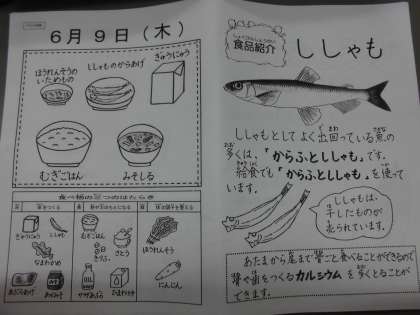 6月9日（木）
ほうれんそうの
いためもの
ししゃものからあげ
ぎゅうにゅう
むぎごはん
みそしる
食べ物の三つのはたらき
体をつくる
体の調子を整える
ぎゅうにゅう
ししゃも
なまわかめ
あぶらあげ
むぎごはん
さとう
ほうれんそう
にんじん
しょくひんしょうかい
食品紹介
ししゃも
ししゃもとして よく出回っている魚の
多くは、「からふとししゃも」です。
給食でも「からふとししゃも」を使って
います。
ししゃもは、
干したものが
売られています。
あたまから尾まで骨ごと食べることができるので
骨や歯をつくるカルシウムを多くとることが
できます。